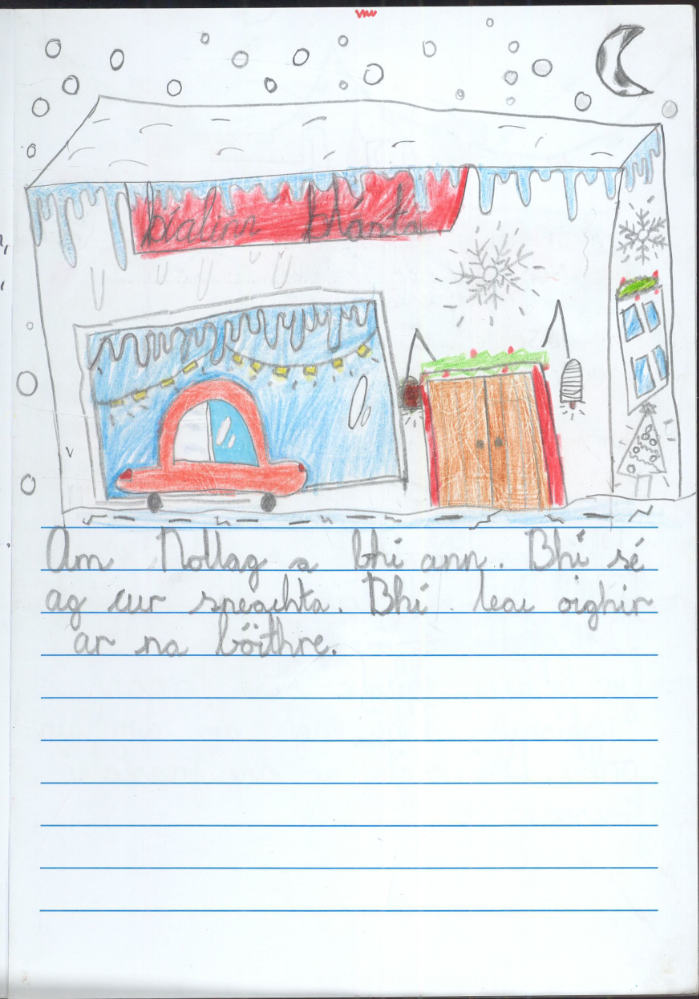 bialann blásta
Am Nollag a bhí ann. Bhí sé
ag cur sneachta. Bhí leac oighir
ar na bóithre.